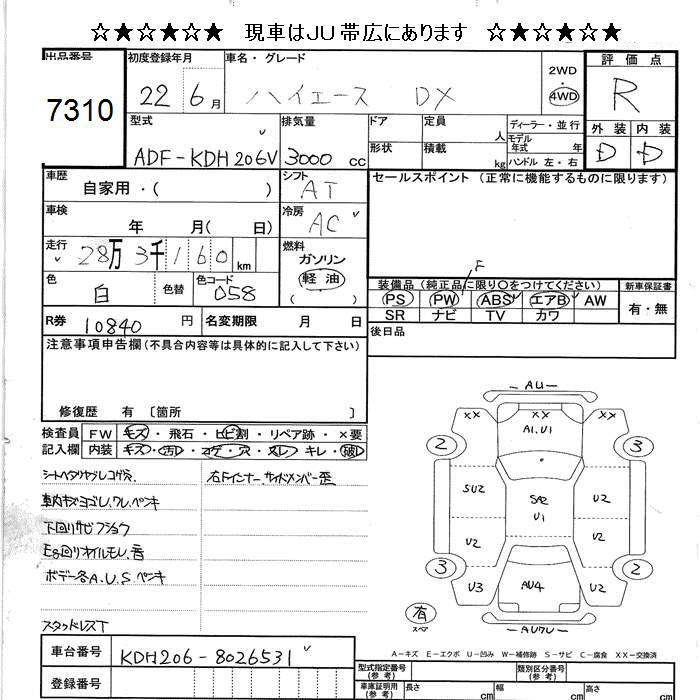 ☆★☆★☆★ 現車はJU帯広にあります ☆★☆★☆★
出品番号 初度登録年月 車名・グレード 評価点
7310 22 6月 ハイエース DX 2WD 4WD R
型式 排気量 ドア 定員 人 ディーラー・並行 外装 内装
ADF-KDH206V 3000 cc 形状 積載 kg モデル年式 年 ハンドル 左・右 D D
車歴 シフト セールスポイント (正常に機能するものに限ります)
自家用・( ) AT
車検 冷房
年 月( 日) AC
走行 燃料
28万3千160km ガソリン
色 色替 色コード 軽油
白 058 ( )
装備品 (純正品に限り○をつけてください) 新車保証書
F
PS PW ABS エアB AW 有・無
SR ナビ TV カワ
R券 10840 円 名変期限 月 日 後日品
注意事項申告欄(不具合内容等は具体的に記入して下さい)
修復歴 有 〔箇所 〕
検査員 FW キズ・飛石・ヒビ割・リペア跡・×要
記入欄 内装 キズ・汚レ・コゲ・穴・スレ・キレ・破レ
シートヘタリヤブレコゲ穴 右Fインナー、サイドメンバー歪
車内キズヨゴレ、ワレ、ペンキ
下回リサビフショク
Eg回りオイルモレ、音
ボデー各A.U.S.ペンキ
スタッドレスT
AU
XX XX XX
A1.U1
2 3
SU2 SA2 U2
U1
U2 U2
3 2
U3 AU4 U2
有
スペア
AUワレ
A-キズ E-エクボ U-凹み W-補修跡 S-サビ C-腐食 XX-交換済
車台番号 KDH206-8026531
登録番号
型式指定番号(参考) 類別区分番号(参考)
車庫証明用(参考) 長さ cm 幅 cm 高さ cm